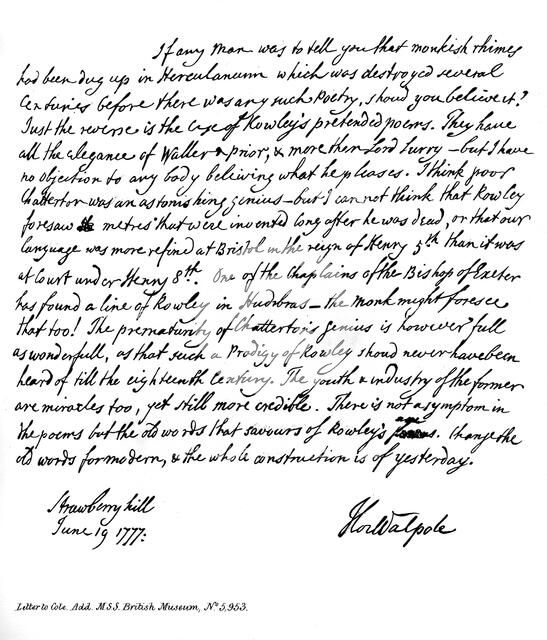 If any man was to tell you that monkish rhimes
had been dug up in Herculanum which was destroyed several
Centuries before there was any such Poetry, shoud you believe it?
Just the reverse is the case of Rowley's pretended poems. They have
all the elegance of Waller & prior, & more then Lord Surry – but I have
no objection to any body believing what he pleases. I think poor
Chatterton was an astonishing genius – but I cannot think that Rowley
foresaw metres that were invented long after he was dead, or that our
language was more refined at Bristol in the reign of Henry 5th than it was
at Court under Henry 8th. One of the Chaplains of the Bishop of Exeter
has found a line of Rowley in Hudibras – the monk might foresee
that too! The prematurity of Chatterton's genius is however full
as wonderfull, as that such a Prodigy of Rowley shoud never have been
heard of till the eighteenth Century. The youth & industry of the former
are miracles too, yet still more credible. There is not a symptom in
the poems but the old words that savours of Rowley's age. Change the
old words for modern, & the whole construction is of yesterday.
Strawberry hill
June 19 1777:
Hor Walpole
Letter to Cole. Add. M.S.S. British Museum, No 5,953.